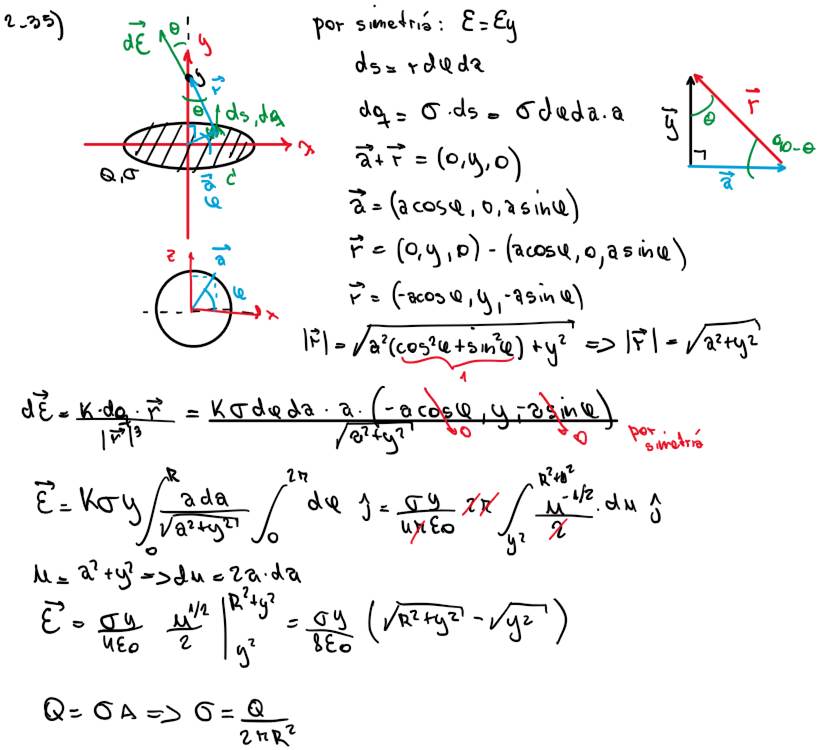 2-35)
por simetriá: E = Ey
ds = r dφ da
dq = σ · ds = σ dφ da · a
a⃗ + r⃗ = (0, y, 0)
a⃗ = (a cos φ, 0, a sin φ)
r⃗ = (0, y, 0) - (a cos φ, 0, a sin φ)
r⃗ = (-a cos φ, y, -a sin φ)
|r⃗| = √(a²(cos²φ + sin²φ) + y²) => |r⃗| = √(a² + y²)
1
dE⃗
θ
y
y
r⃗
θ
ds, dq
x
Q, σ
a⃗
φ
d
z
a⃗
φ
x
y⃗
θ
r⃗
90-θ
a⃗
dE⃗ = K · dq · r⃗ / |r⃗|³ = K σ dφ da · a · (-a cos φ, y, -a sin φ) / √(a² + y²)
0 0 por simetriá
E⃗ = K σ y ∫₀ᴿ a da / √(a² + y²) ∫₀^2π dφ ĵ = σ y / 4π ε0 2π ∫_y²^R²+y² u^-1/2 / 2 · du ĵ
u = a² + y² => du = 2a · da
E⃗ = σ y / 4 ε0 u^1/2 / 2 |_y²^R²+y² = σ y / 8 ε0 (√(R² + y²) - √y²)
Q = σ A => σ = Q / 2π R²